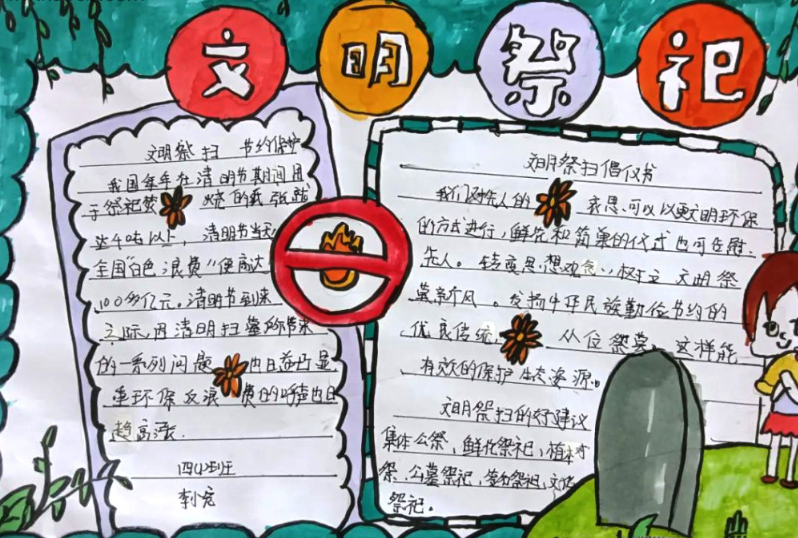 文明祭祀
文明祭扫 节约保护
我国每年在清明节期间因
于祭祀焚 烧的纸张就
达千吨以上, 清明节当天
全国"白色浪费"便高达
100多亿元。清明节到来
之际,因清明扫墓所带来
的一系列问题 也日益凸显
重环保反浪 费的呼声也日
趋高涨.
四(4)班
文明祭扫倡仪书
我们对先人的 哀思、可以以更文明环保
的方式进行,鲜花和简单的仪式也可告慰
先人。转变思想观念,树立 文明祭
奠新风。发扬中华民族勤俭节约的
优良传统, 从位祭墓、这样能
有效的保护生态资源。
文明祭扫的好建议
集体公祭、鲜花祭祀、植树
祭、公墓祭祀、签名祭祀、文化
祭祀。